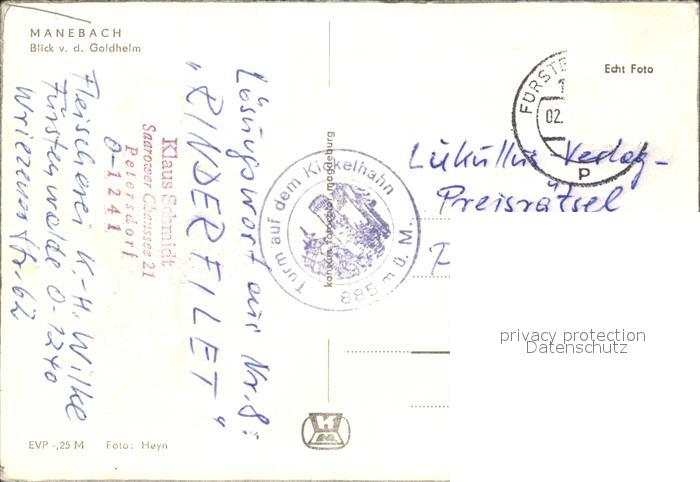 MANEBACH
Blick v. d. Goldhelm
Lösungswort aus Nr. 8:
"RINDERFILET"
Klaus Schmidt
Saarower Chaussee 21
Petersdorf
O-1241
Fleischerei K.-H. Wilke
Fürstenwalde O-1240
Wriezener Str. 62
EVP -,25 M Foto: Heyn
konsum fotocolor magdeburg
Turm auf dem Kickelhahn
885 m ü. M.
Echt Foto
FÜRSTE
02.
p
Lukullus-Verlag-
Preisrätsel
P
privacy protection
Datenschutz